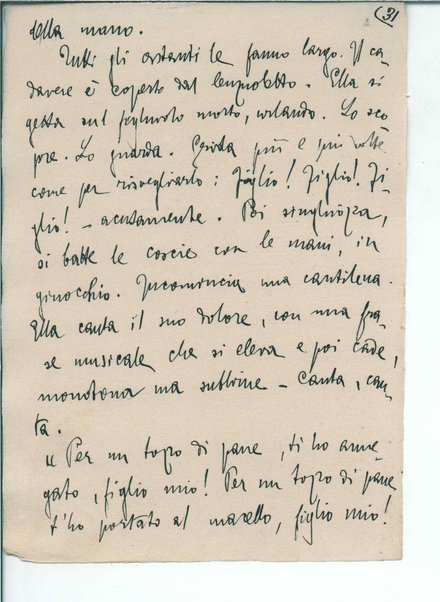 (31
della mano.
Tutti gli astanti le fanno largo. Il ca-
davere è coperto dal lenzuoletto. Ella si
getta sul figliuolo morto, urlando. Lo sco-
pre. Lo guarda. Grida più e più volte
come per risvegliarlo: Figlio! Figlio! Fi-
glio! - acutamente. Poi singhiozza,
si batte le coscie con le mani, in
ginocchio. Incomincia una cantilena.
Ella canta il suo dolore, con una fra-
se musicale che si eleva e poi cade,
monotona ma sublime - canta, can-
ta.
"Per un tozzo di pane, ti ho anne
gato, figlio mio! Per un tozzo di pane
t'ho portato al macello, figlio mio!